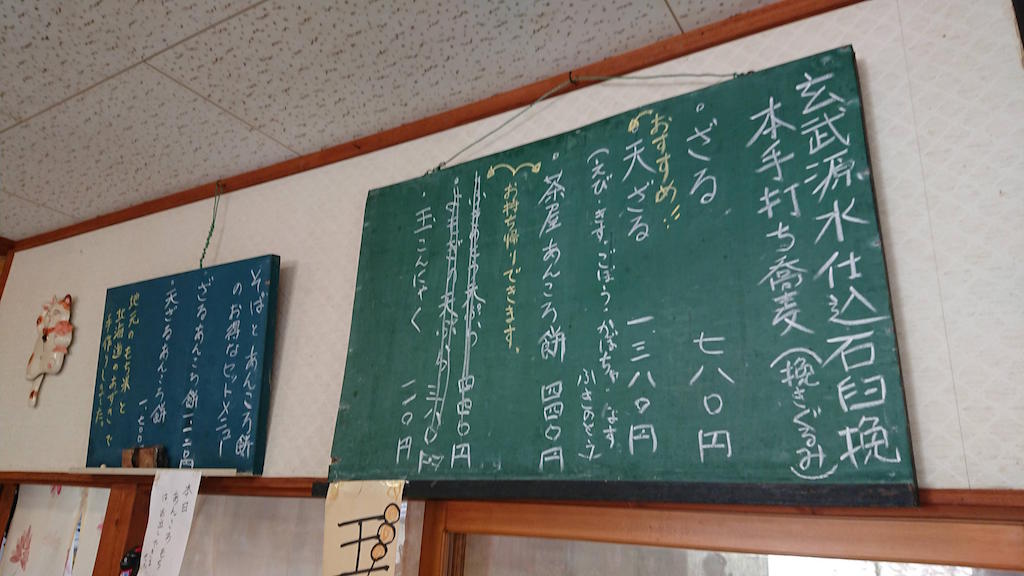 玄武源水仕込石臼挽
本手打ち蕎麦(挽きぐるみ)
・ざる 七八〇円
おすすめ!!
天ざる 一三八〇円
(えび・きす・ごぼう・かぼちゃ・なす
・茶屋あんころ餅 四四〇円
お持ち帰りできます。
四四〇円
・玉こんにゃく 一一〇円
そばとあんころ餅
のお得なセットメニュー
ざるあんころ餅
天ざるあんころ餅
地元のもち米と
北海道のあずきで
本日